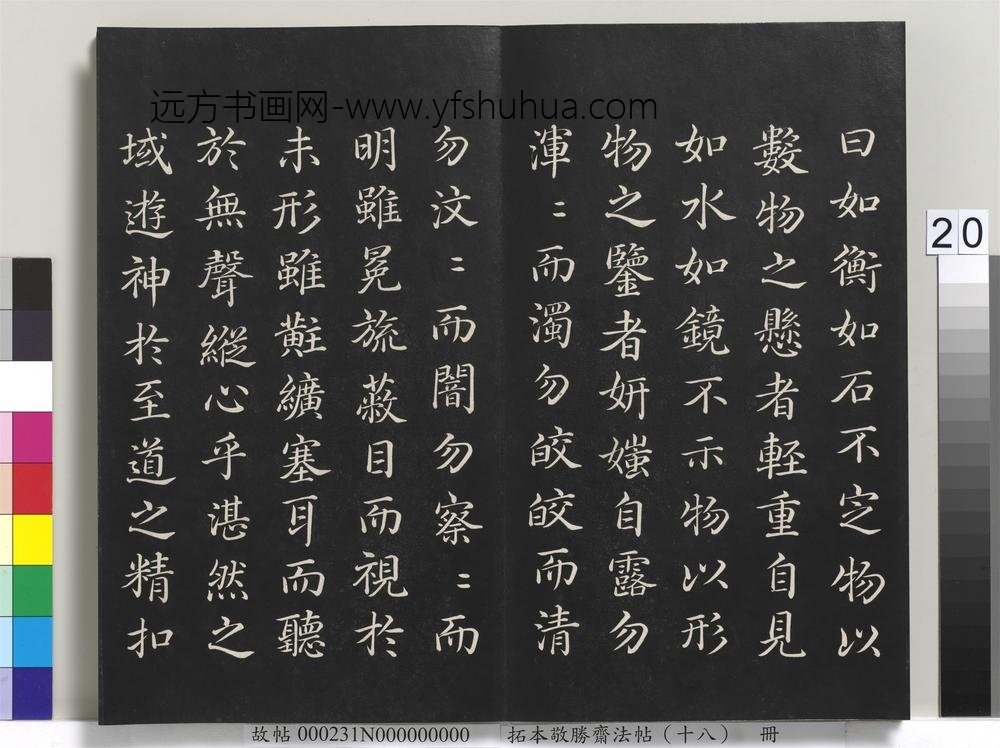 远方书画网-www.yfshuhua.com
曰如衡如石不定物以
數物之懸者輕重自見
如水如鏡不示物以形
物之鑒者妍媸自露勿
渾〻而濁勿皎皎而清
勿汶〻而闇勿察〻而
明雖冕旒蔽目而視於
未形雖黈纊塞耳而聽
於無聲縱心乎湛然之
域遊神於至道之精扣
20
故帖 000231N000000000
拓本敬勝齋法帖(十八) 冊